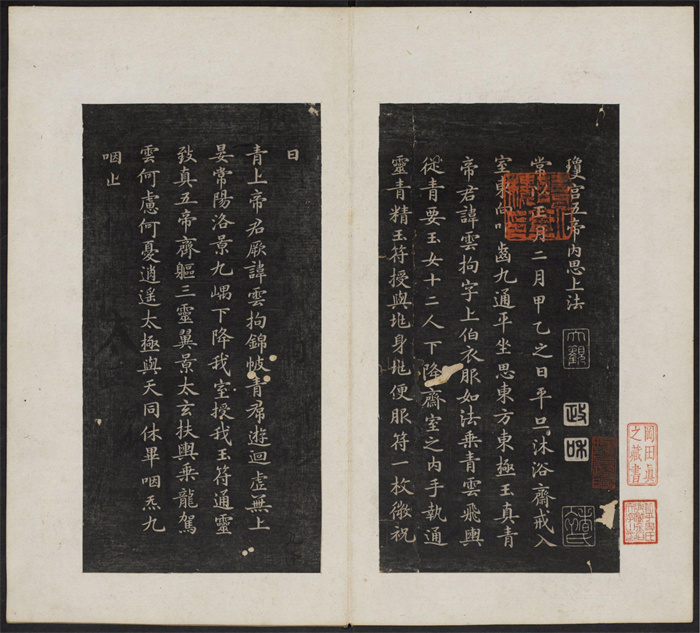 瓊宮五帝內思上法
常以正月二月甲乙之日平旦沐浴齋戒入
室東向叩齒九通平坐思東方東極玉真青
帝君諱雲拘字上伯衣服如法乘青雲飛輿
從青要玉女十二人下降齋室之內手執通
靈青精玉符授與兆身兆便服符一枚微祝
曰
青上帝君厥諱雲拘錦帔青帬遊迴虛無上
晏常陽洛景九嵎下降我室授我玉符通靈
致真五帝齊軀三靈翼景太玄扶輿乘龍駕
雲何慮何憂逍遙太極與天同休畢咽炁九
咽止
大觀
政和
岡田真
之藏書